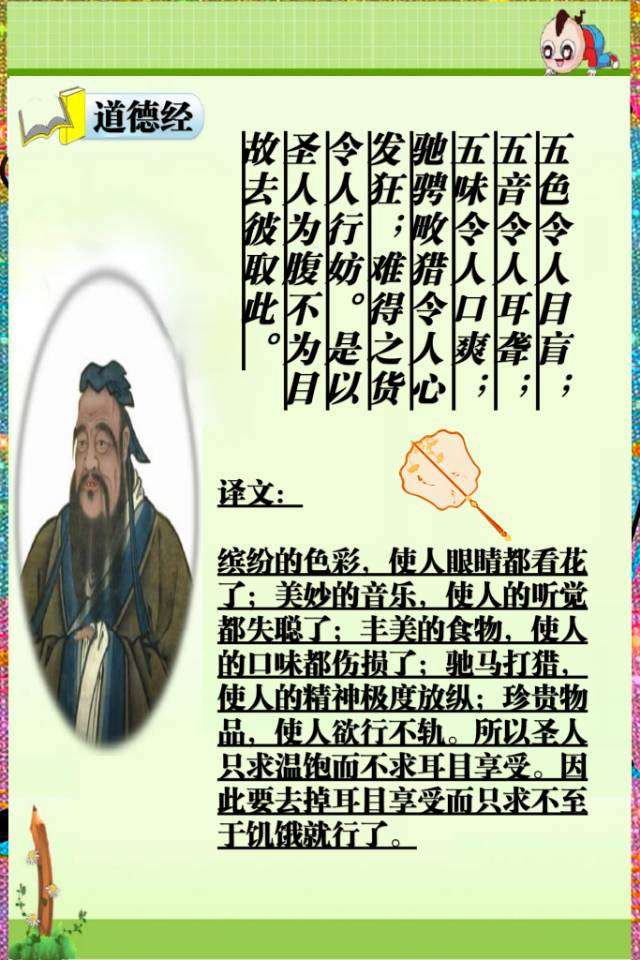 道德经
五色令人目盲；
五音令人耳聋；
五味令人口爽；
驰骋畋猎令人心
发狂；难得之货
令人行妨。是以
圣人为腹不为目
故去彼取此。
译文：
缤纷的色彩，使人眼睛都看花
了；美妙的音乐，使人的听觉
都失聪了；丰美的食物，使人
的口味都伤损了；驰马打猎，
使人的精神极度放纵；珍贵物
品，使人欲行不轨。所以圣人
只求温饱而不求耳目享受。因
此要去掉耳目享受而只求不至
于饥饿就行了。